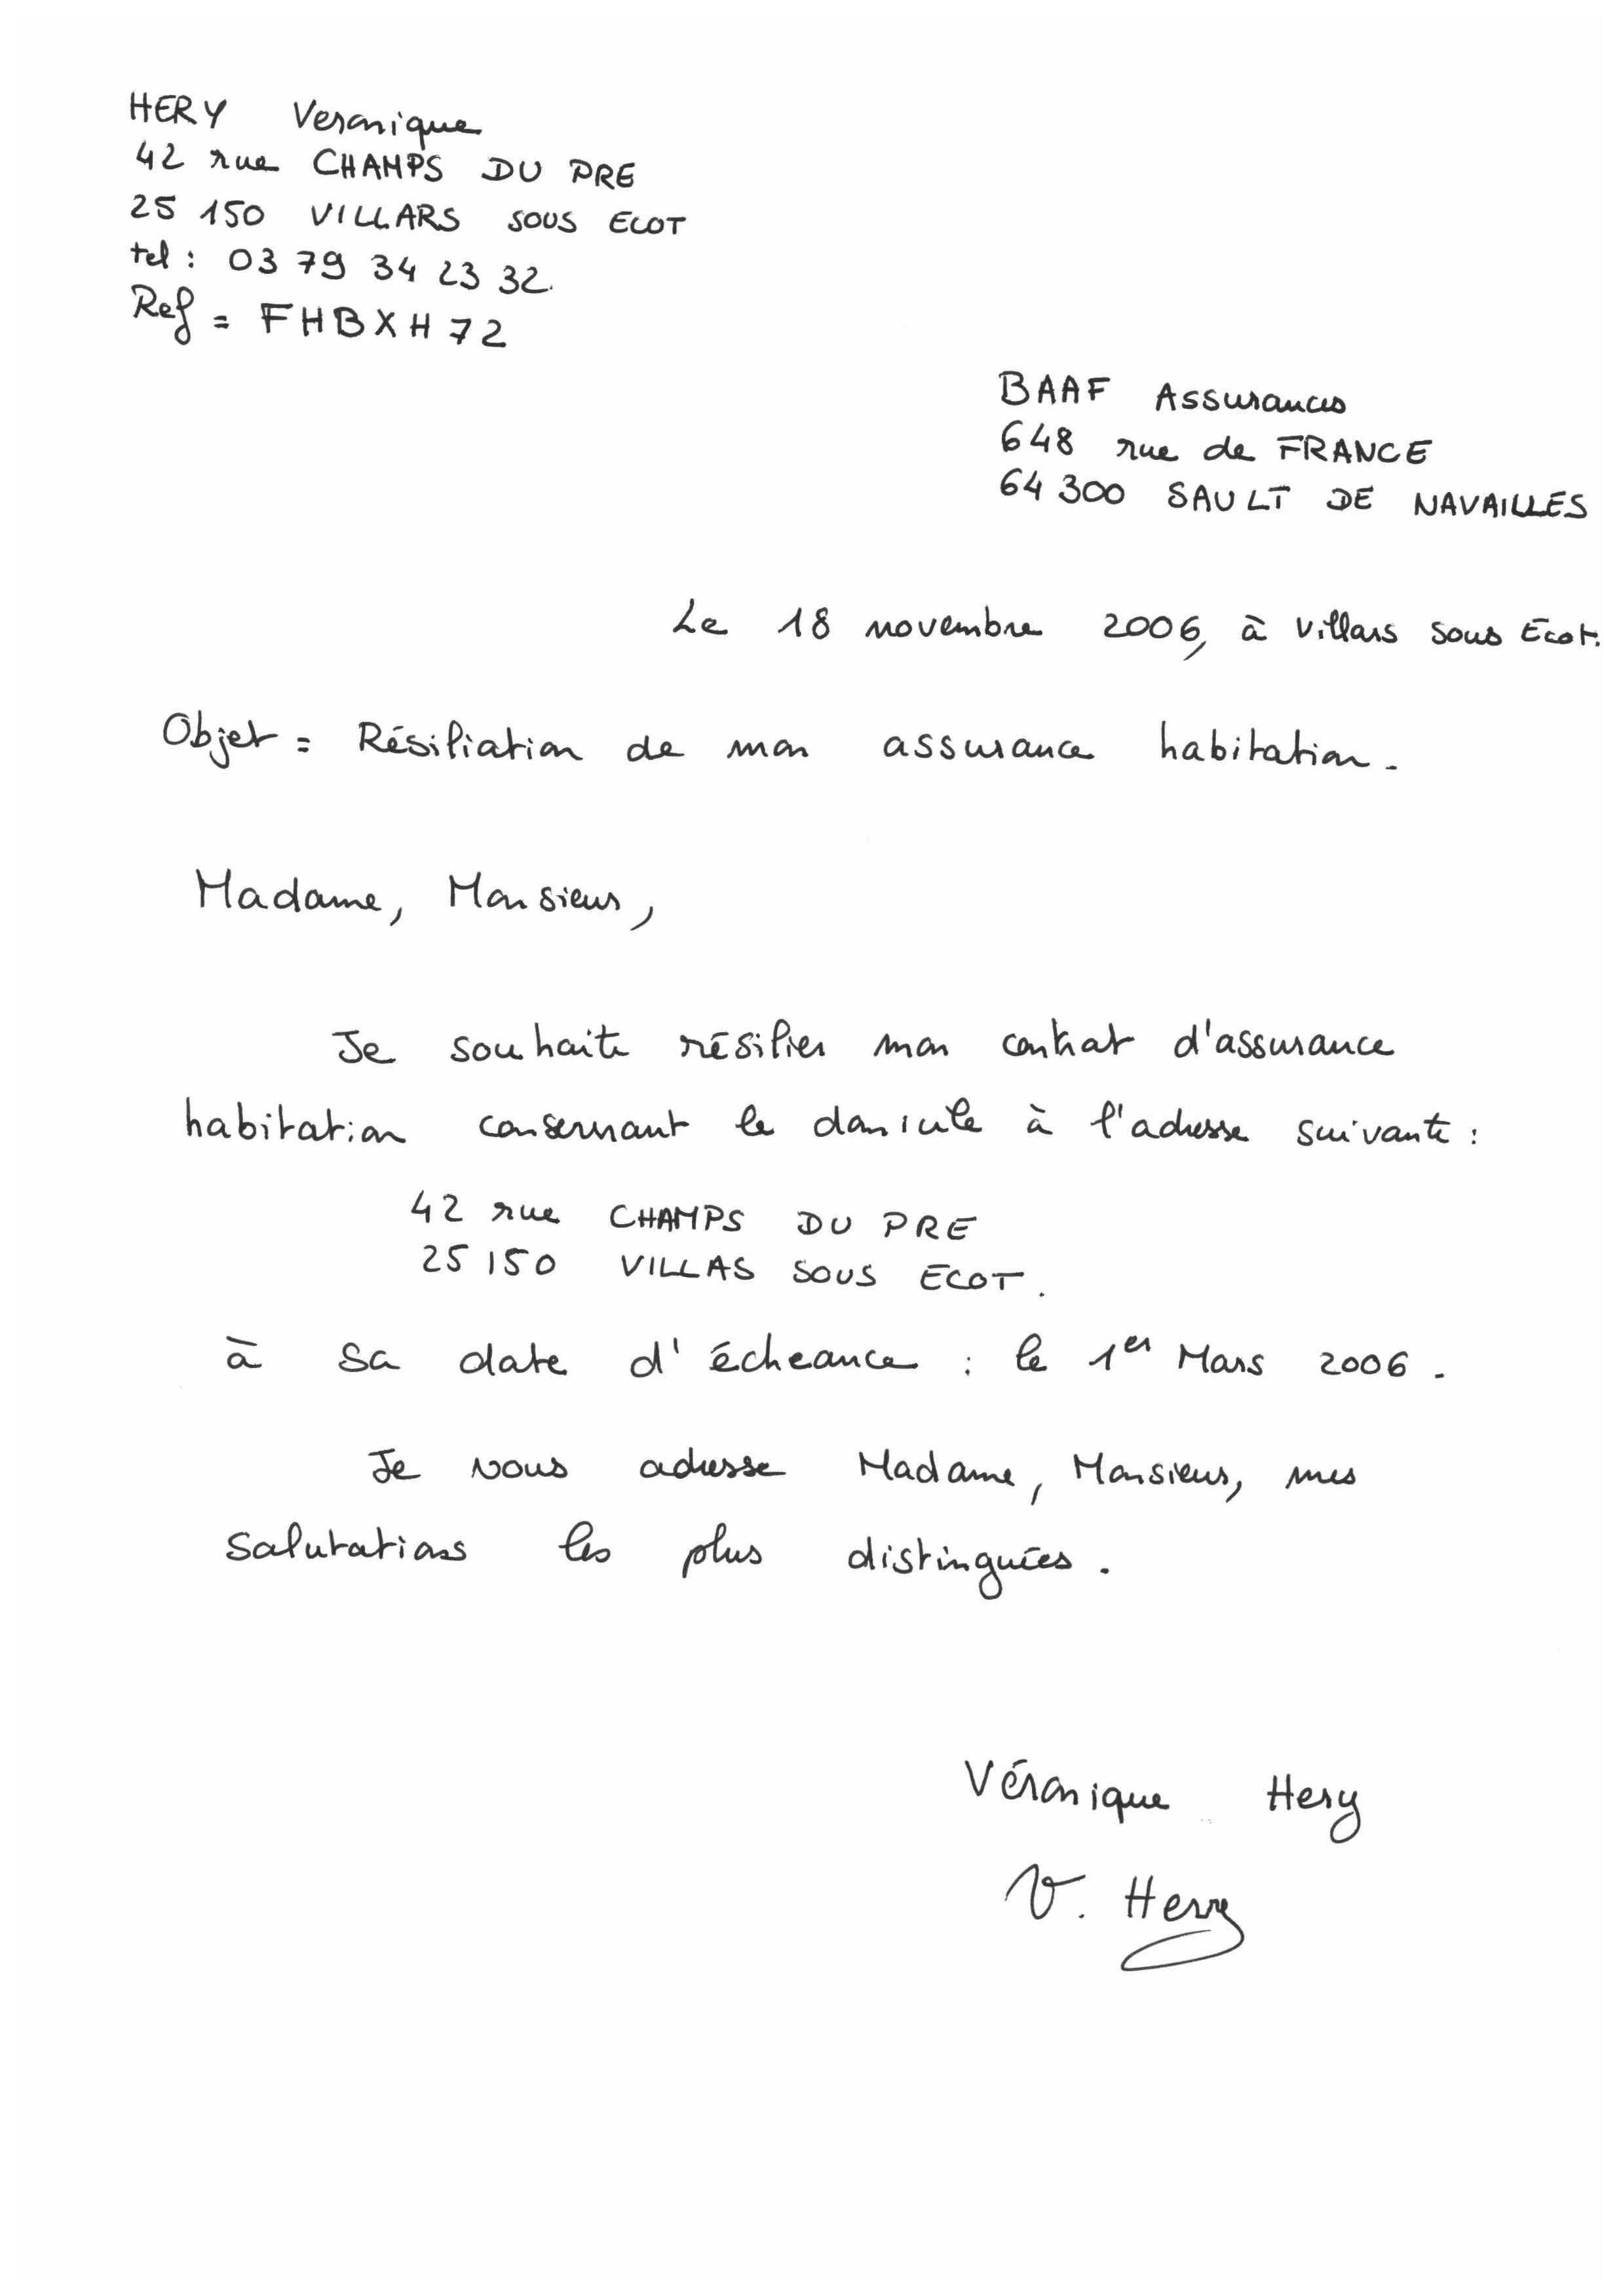 HERY Veronique
42 rue CHAMPS DU PRE
25 150 VILLARS SOUS ECOT
tel : 03 79 34 23 32.
Ref = FHBXH72
BAAF Assurances
648 rue de FRANCE
64 300 SAULT DE NAVAILLES
Le 18 novembre 2006, à Villars sous Ecot.
Objet = Résiliation de mon assurance habitation.
Madame, Monsieur,
Je souhaite résilier mon contrat d'assurance
habitation consernant le domicile à l'adresse suivante :
42 rue CHAMPS DU PRE
25 150 VILLAS SOUS ECOT.
à sa date d'écheance : le 1er Mars 2006.
Je vous adresse Madame, Monsieur, mes
salutations les plus distinguées.
Véronique Hery
V. Hery